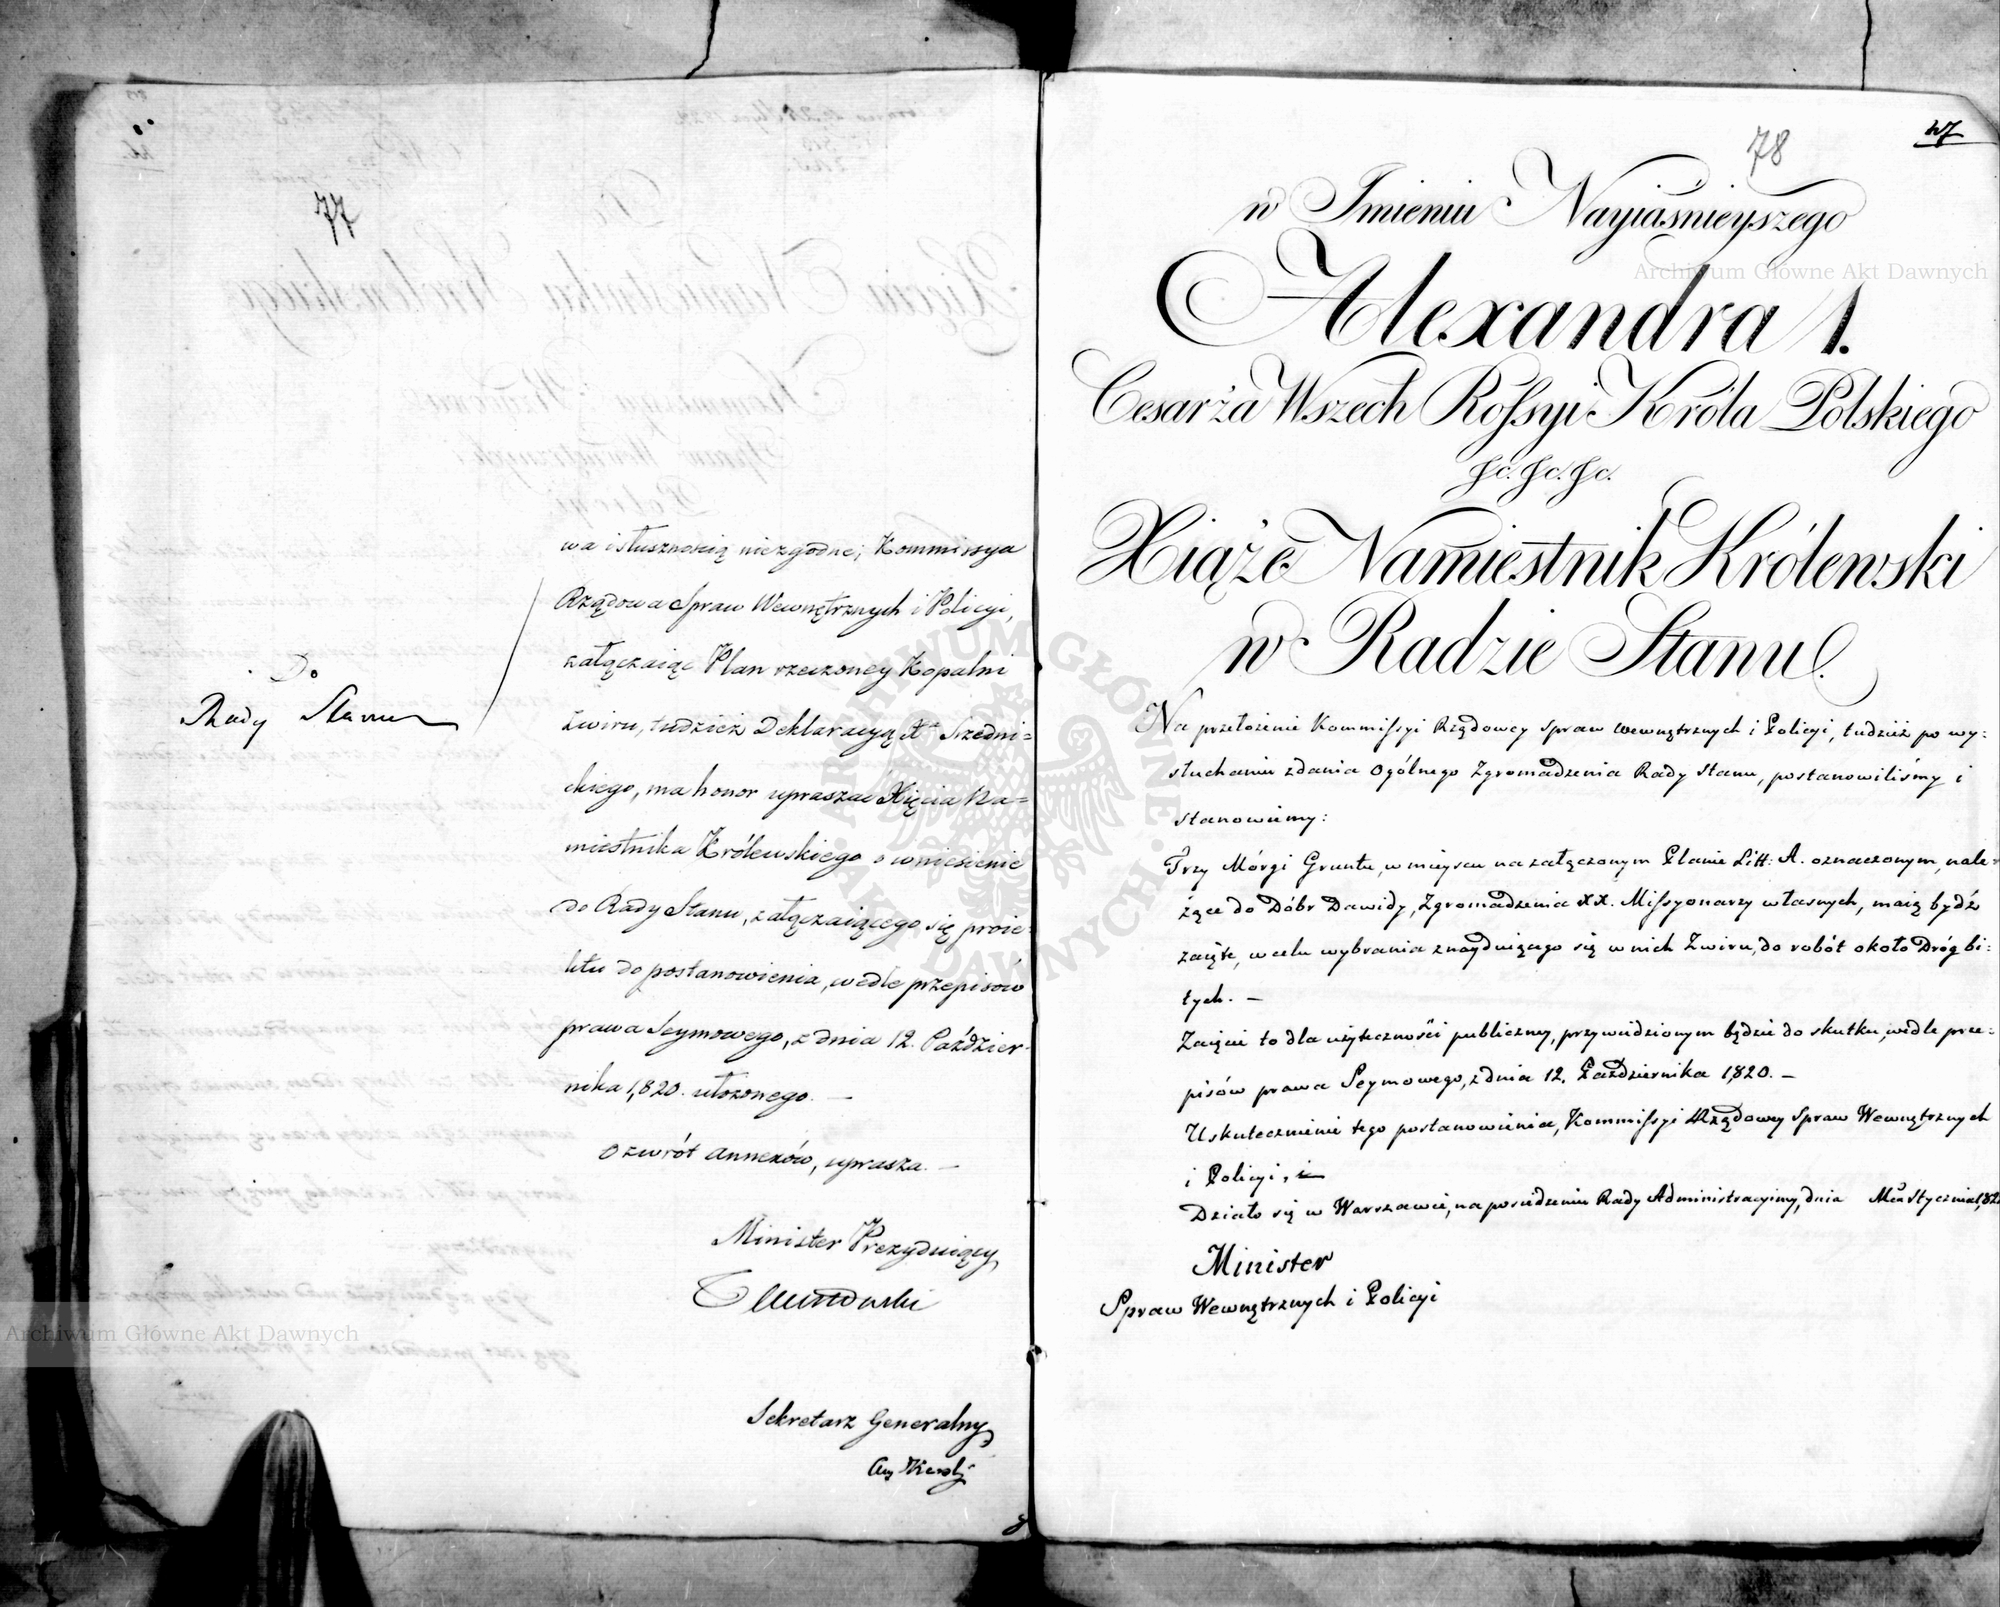 77
Do
Rady Stanu
wa i słusznością niezgodne; Kommissya
Rządowa Spraw Wewnętrznych i Policyi,
załączaiąc Plan rzeczoney Kopalni
Zwiru, tudzież Deklaracyą Srzedni=
ckiego, ma honor upraszać Xięcia Na=
miestnika Królewskiego o wniesienie
do Rady Stanu, załączaiącego się proie=
ktu do postanowienia, wedle przepisów
prawa Seymowego, z dnia 12. Paździer=
nika 1,820. ułożonego. —
O zwrót annexów, uprasza. —
Minister Prezyduiący
Sekretarz Generalny
78
47
w Imieniu Nayiaśnieyszego
Alexandra 1.
Cesarza Wszech Rossyi Króla Polskiego
&c. &c. &c.
Xiąże Namiestnik Królewski
w Radzie Stanu.
Na przełożenie Kommissyi Rządowey Spraw Wewnętrznych i Policyi, tudzież po wy=
słuchaniu zdania Ogólnego Zgromadzenia Rady Stanu, postanowiliśmy i
stanowiemy:
Trzy Mórgi Gruntu, w mieyscu na załączonym Planie Litt: A. oznaczonym, nale=
żące do Dóbr Dawidy, Zgromadzenia XX. Missyonarzy własnych, maią bydź
zaięte, w celu wybrania znayduiącego się w nich Zwiru, do robót około Dróg bi=
tych. —
Zaięcie to dla użyteczności publiczney, przywiedzionym będzie do skutku, wedle prze=
pisów prawa Seymowego, z dnia 12. Października 1,820. —
Uskutecznienie tego postanowienia, Kommissyi Rządowey Spraw Wewnętrznych
i Policyi,
Działo się w Warszawie, na posiedzeniu Rady Administracyiney, dnia Mca Stycznia 182
Minister
Spraw Wewnętrznych i Policyi
Archiwum Główne Akt Dawnych
Archiwum Główne Akt Dawnych
ARCHIWUM GŁÓWNE AKT DAWNYCH